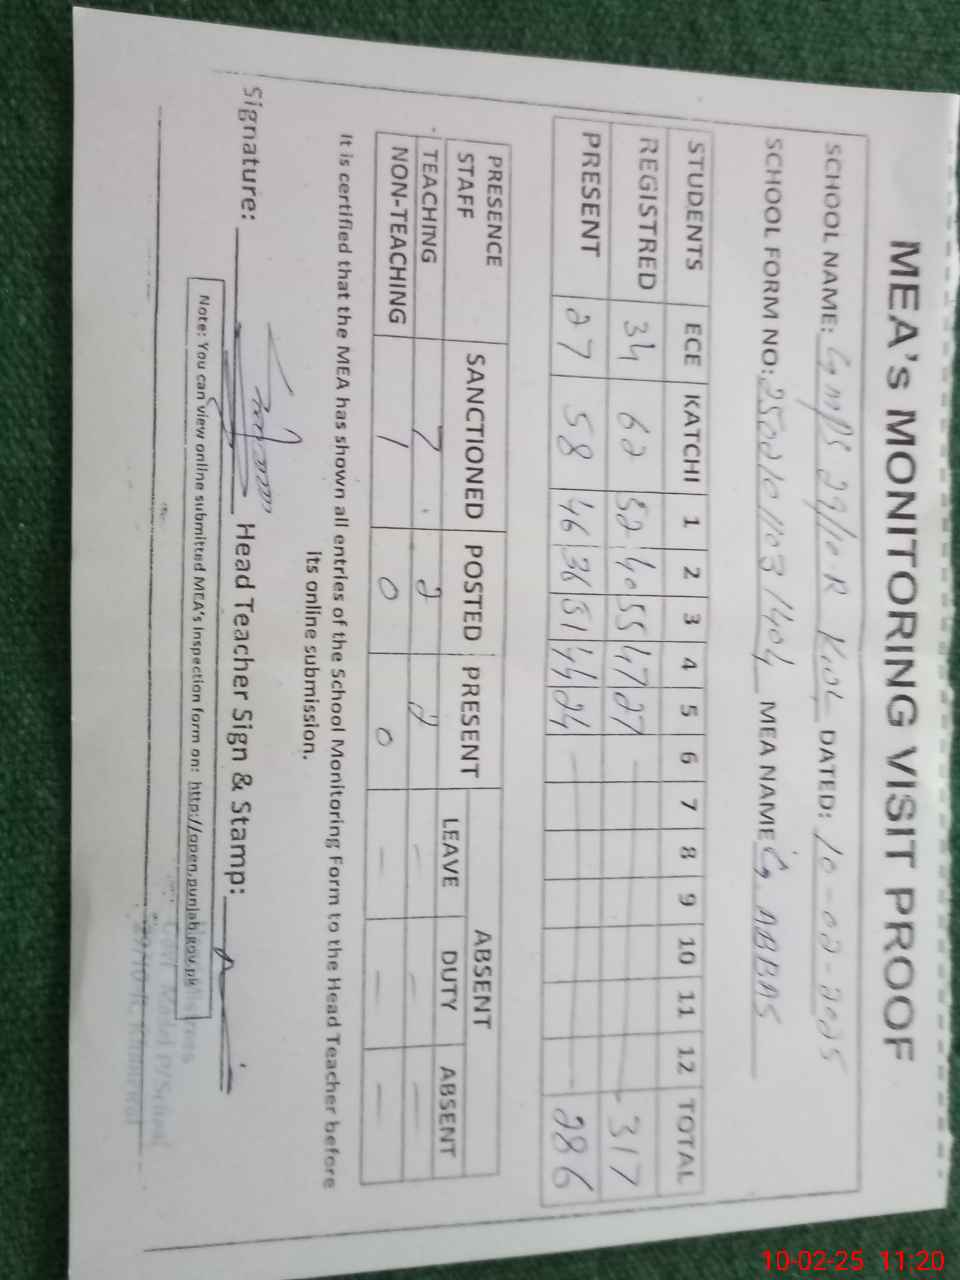 MEA's MONITORING VISIT PROOF
SCHOOL NAME: GMPS 29/10-R Kwl DATED: 10-02-2025
SCHOOL FORM NO: 25021011031404 MEA NAME G. ABBAS
STUDENTS ECE KATCHI 1 2 3 4 5 6 7 8 9 10 11 12 TOTAL
REGISTRED 34 62 52 40 55 47 27 - 317
PRESENT 27 58 46 36 51 44 24 - 286
PRESENCE STAFF SANCTIONED POSTED PRESENT ABSENT
LEAVE DUTY ABSENT
TEACHING 7 2 2 - - -
NON-TEACHING 1 0 0 - - -
It is certified that the MEA has shown all entries of the School Monitoring Form to the Head Teacher before
its online submission.
Signature: Head Teacher Sign & Stamp:
Note: You can view online submitted MEA's inspection form on: http://open.punjab.gov.pk
Govt. Model P/School
29/10-R, Khanewal
10-02-25 11:20